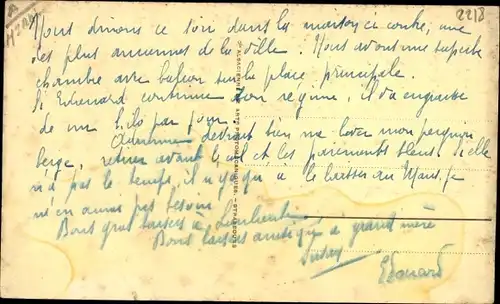 2218
Nous dînons ce soir dans la maison ci contre, une
des plus anciennes de la ville. Nous avons une superbe
chambre avec balcon sur la place principale.
Si Edouard continue son régime, il va engraisser
de un kilo par jour
devrait bien me laver mon peignoir
beige, retirer avant le col et les parements bleus. Si elle
n'a pas le temps, il n'y a qu'à le laisser au
je n'en aurai pas besoin
Bons gros baisers à
Bons baisers ainsi qu'à grand mère
Edouard